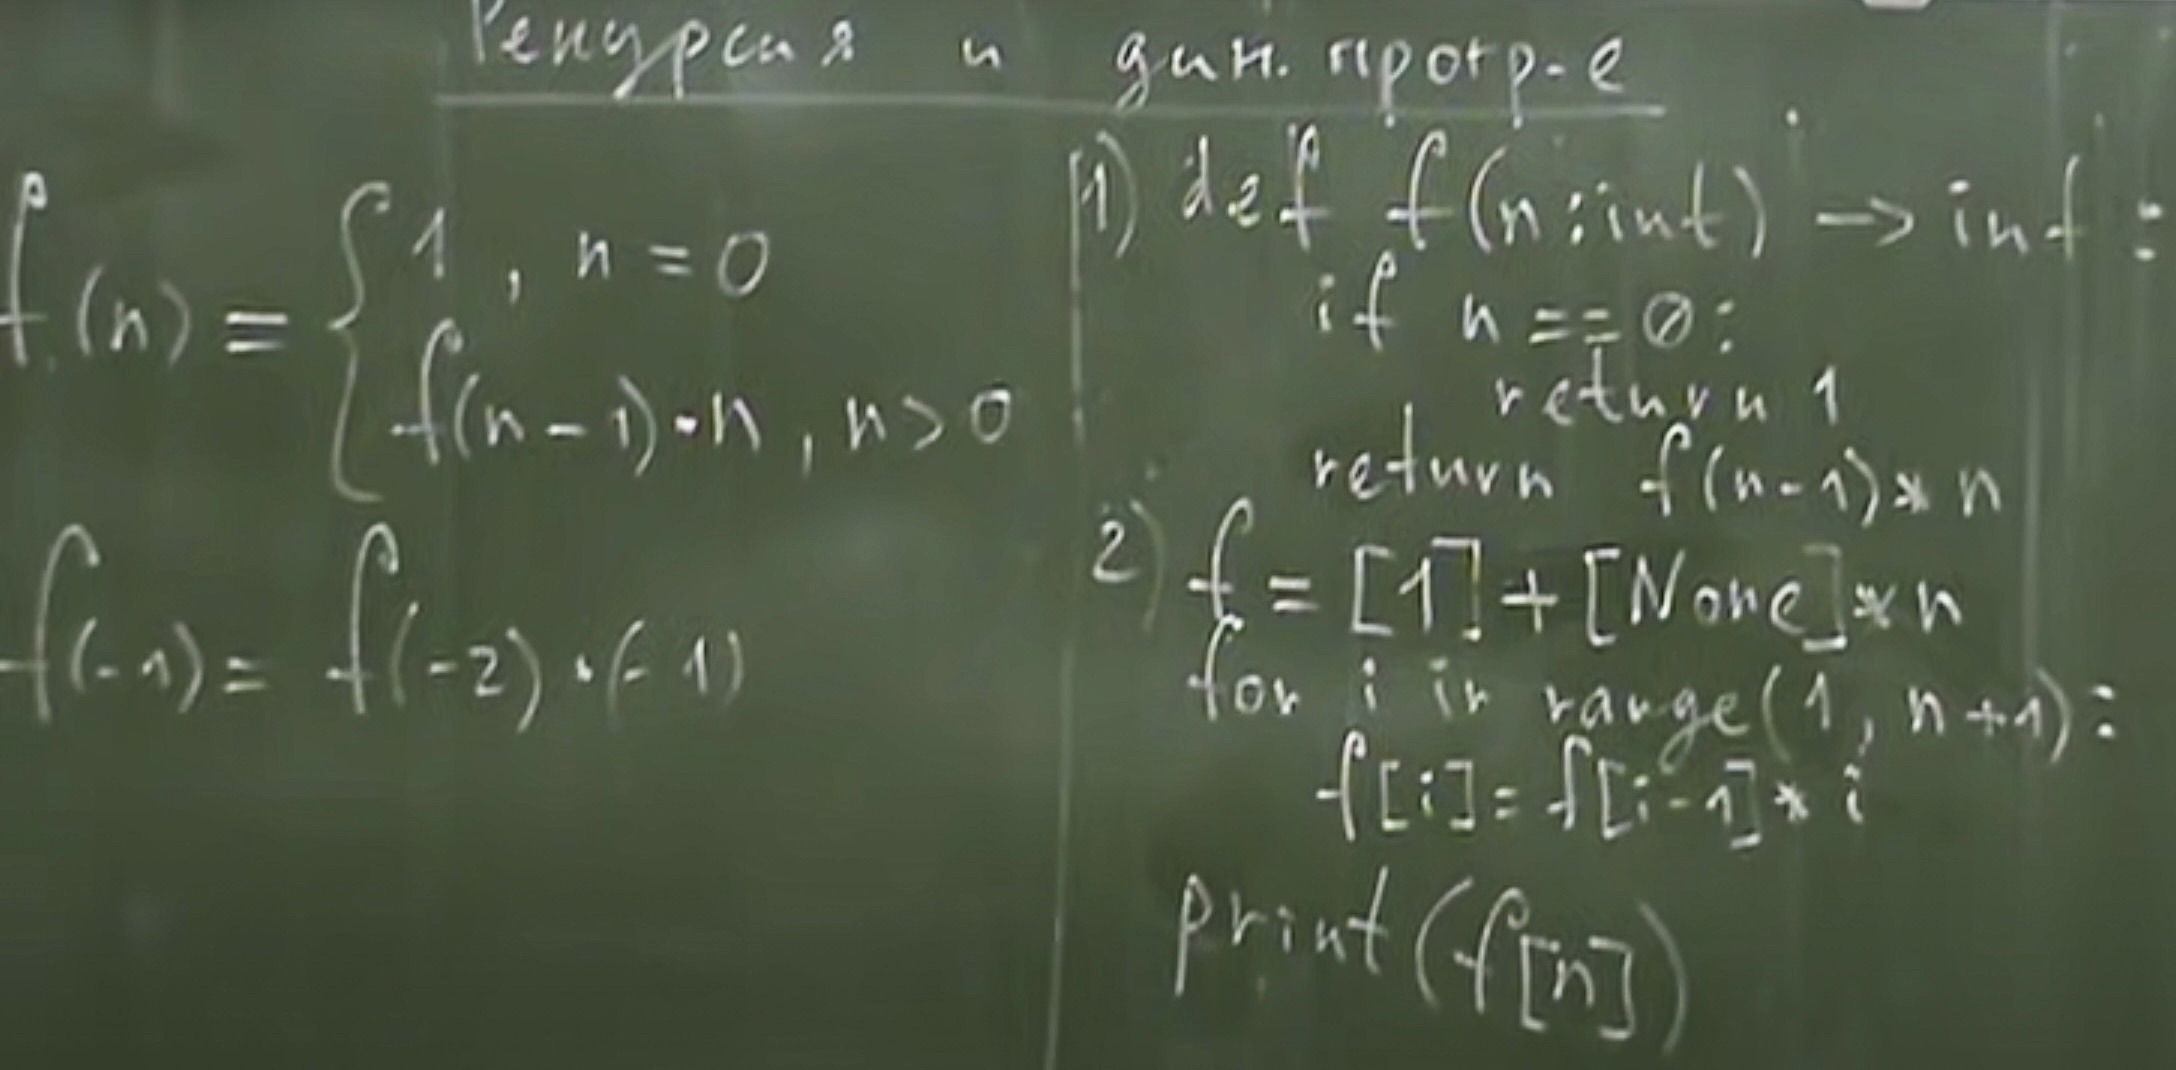 Рекурсия и дин. прогр-е
f(n) = { 1, n = 0
f(n-1)·n, n > 0
f(-1) = f(-2)·(-1)
1) def f(n:int) -> int:
if n == 0:
return 1
return f(n-1)*n
2) f = [1]+[None]*n
for i in range(1, n+1):
f[i] = f[i-1]*i
print(f[n])